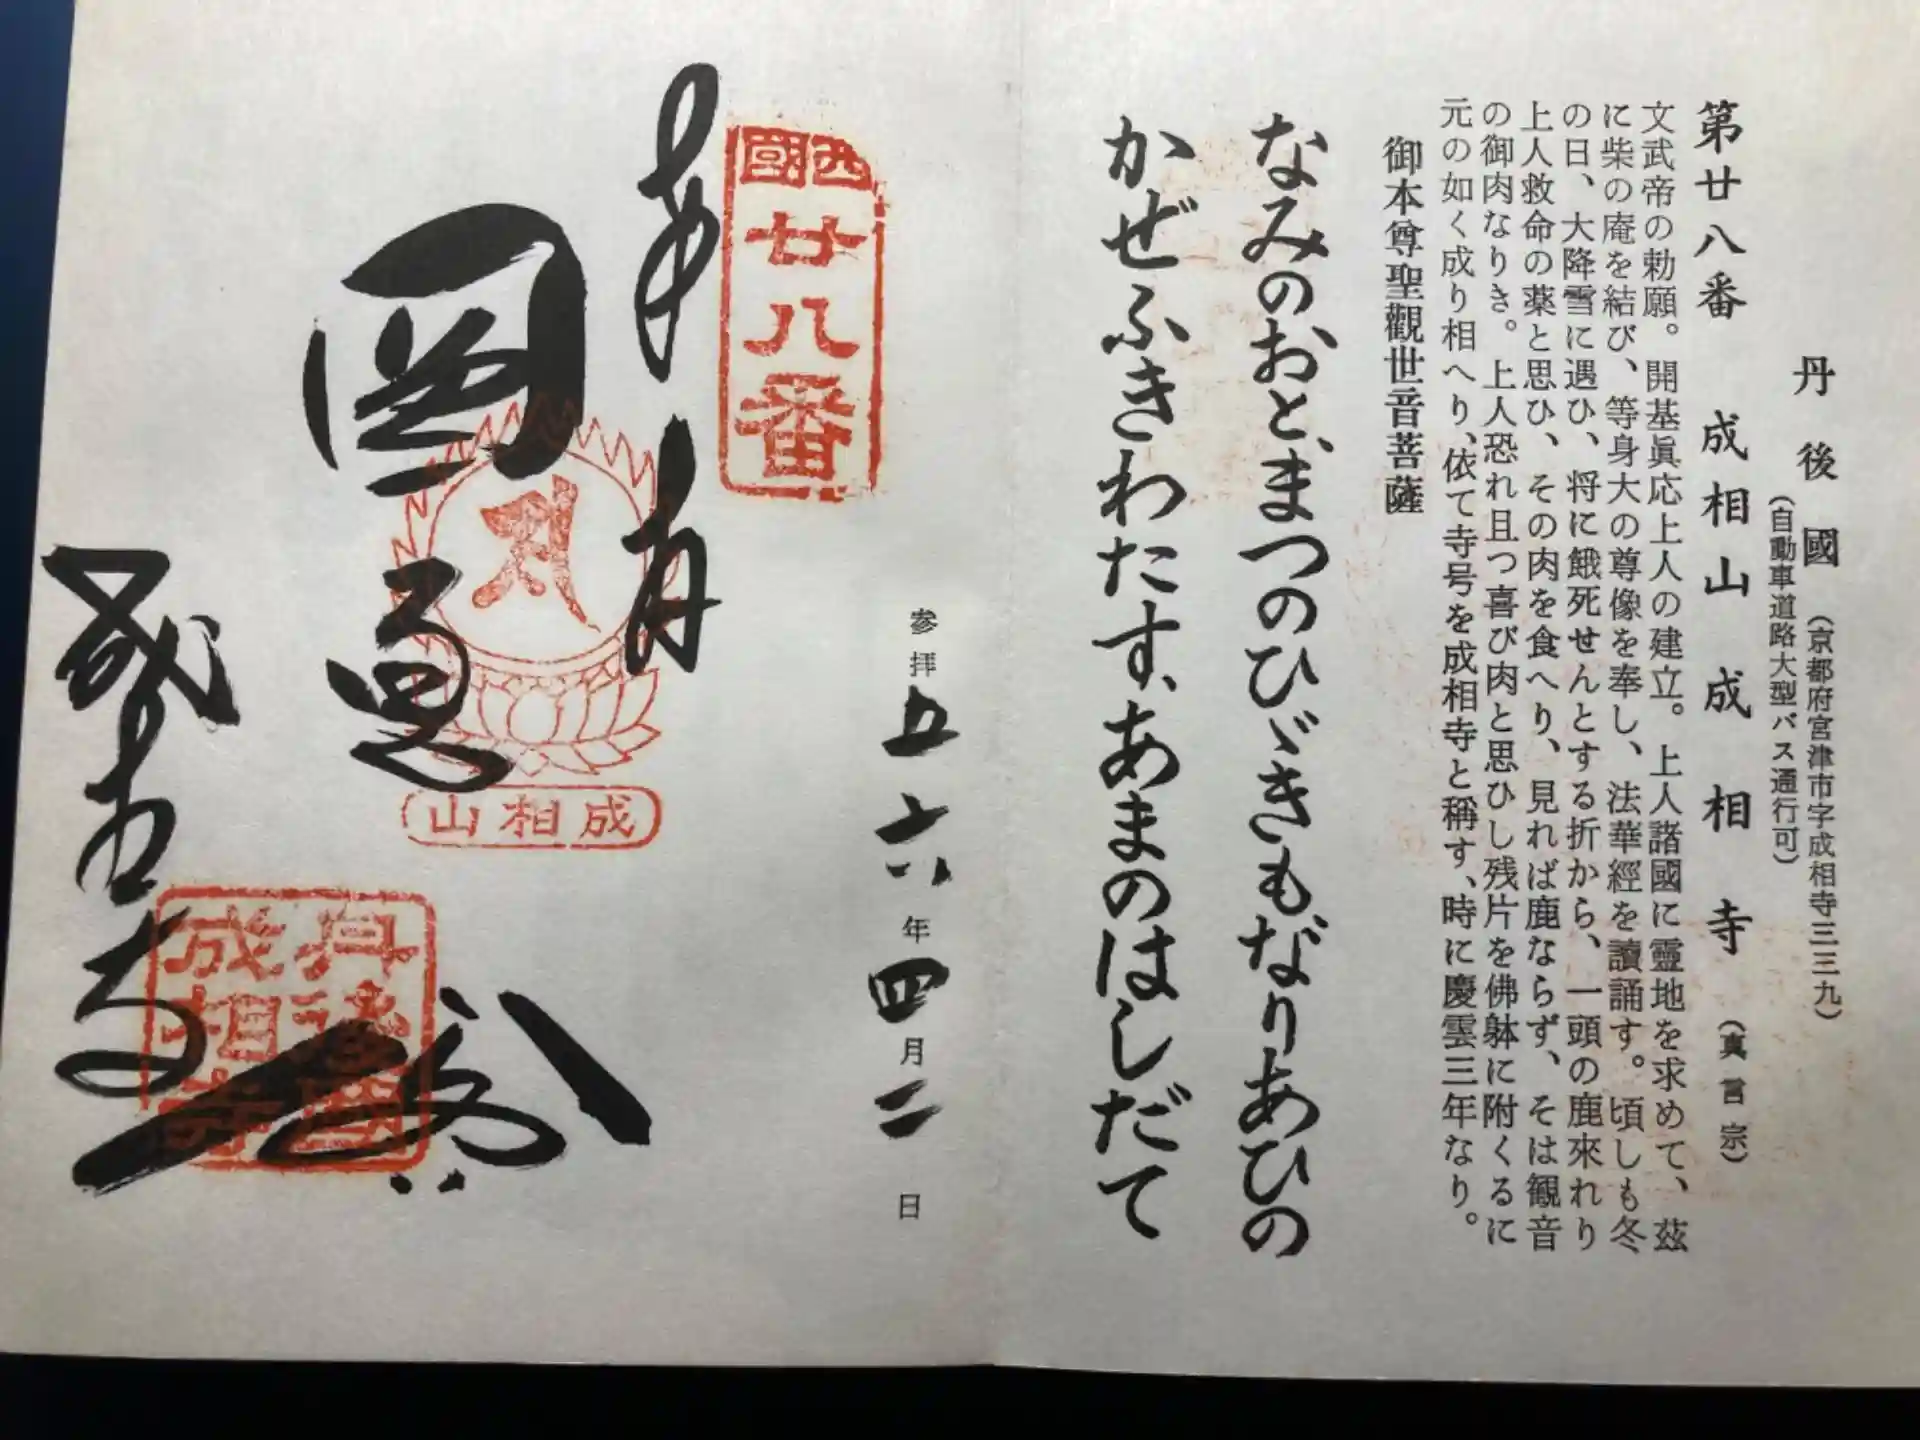 丹後國 (京都府宮津市字成相寺三三九)
(自動車道路大型バス通行可)
第廿八番 成相山成相寺 (真言宗)
文武帝の勅願。開基眞応上人の建立。上人諸國に靈地を求めて、茲
に柴の庵を結び、等身大の尊像を奉し、法華經を讀誦す。頃しも冬
の日、大降雪に遇ひ、将に餓死せんとする折から、一頭の鹿來れり
上人救命の薬と思ひ、その肉を食へり、見れば鹿ならず、そは観音
の御肉なりき。上人恐れ且つ喜び肉と思ひし残片を佛躰に附くるに
元の如く成り相へり、依て寺号を成相寺と稱す、時に慶雲三年なり。
御本尊聖觀世音菩薩
なみのおと、まつのひゞきも、なりあひの
かぜふきわたす、あまのはしだて
参拝 五六年四月二日
西國
廿八番
奉拝
成相山
成相寺
丹後國
成相寺